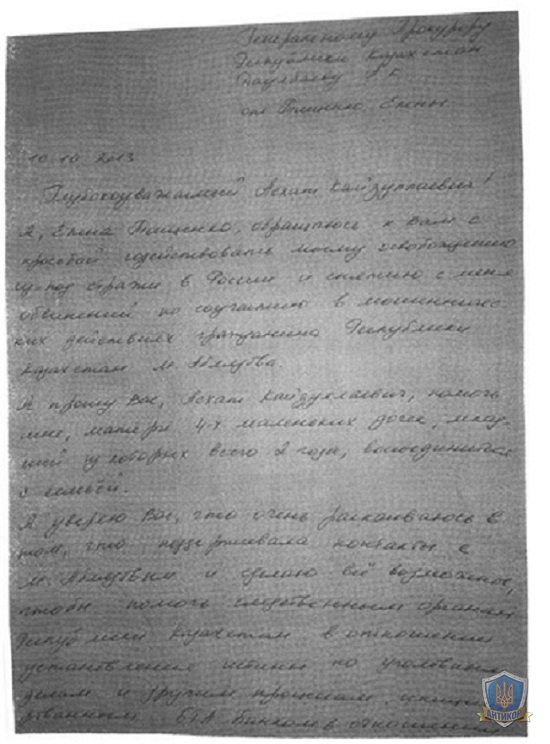 Генеральному Прокурору
Республики Казахстан
Даулбаеву А.К.
от Тищенко Елены
10.10.2013
Глубокоуважаемый Асхат Кайзуллаевич!
Я, Елена Тищенко, обращаюсь к Вам с
просьбой содействовать моему освобождению
из-под стражи в России и снятию с меня
обвинений по соучастию в мошенничес-
ких действиях гражданина Республики
Казахстан М. Аблязова.
Я прошу Вас, Асхат Кайзуллаевич, помочь
мне, матери 4-х маленьких дочек, млад-
шей из которых всего 2 года, воссоединиться
с семьей.
Я уверяю Вас, что очень раскаиваюсь в
том, что поддерживала контакты с
М. Аблязовым и сделаю всё возможное,
чтобы помочь следственным органам
Республики Казахстан в отношении
установления истины по уголовным
делам и другим процессам, иниции-
рованным БТА Банком в отношении
АНТИКОР